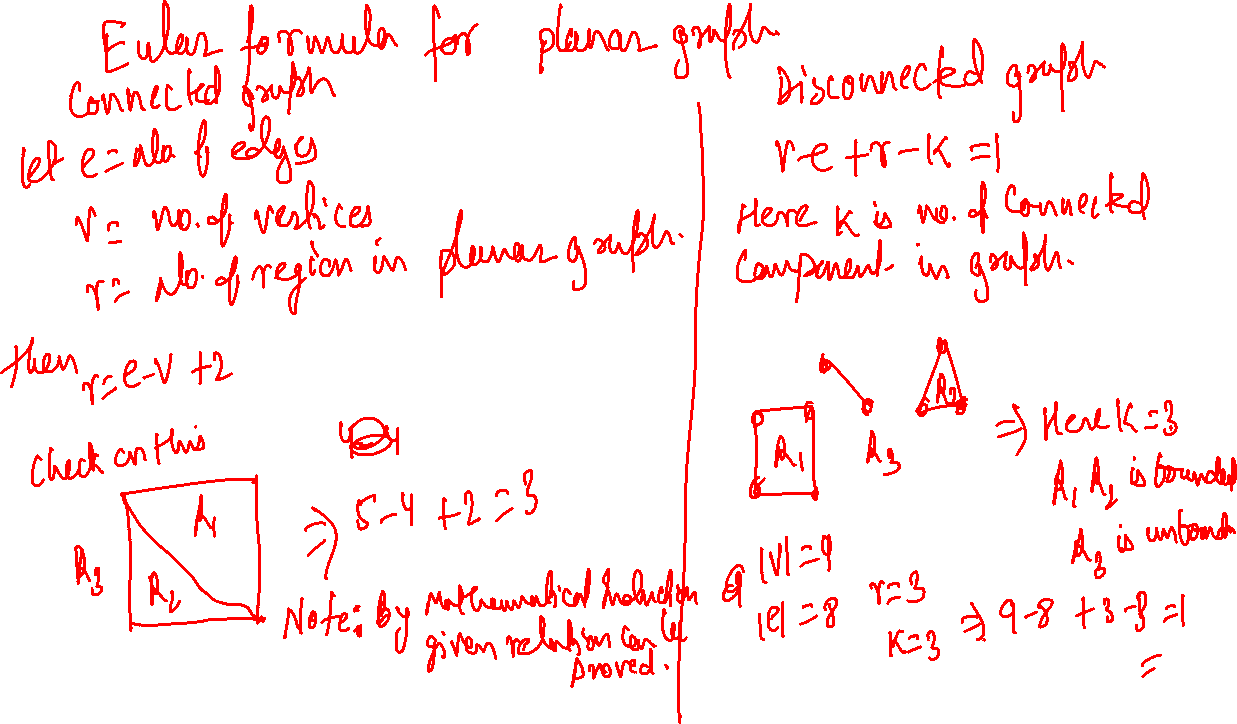 Eular formula for planar graph.
Connected graph
let e = No of edges
v = no. of vertices
r = No. of region in planar graph.
then r = e-v+2
Check on this
R1
R2
R3
⇒ 5-4+2=3
Note: By Mathematical Induction
given relation can be
proved.
Disconnected graph
v-e+r-k=1
Here k is no. of Connected
Component in graph.
R1
R3
R2
⇒ Here K=3
R1 R2 is bounded
R3 is unbounded
|V|=9
|e|=8
r=3
K=3
⇒ 9-8+3-3=1